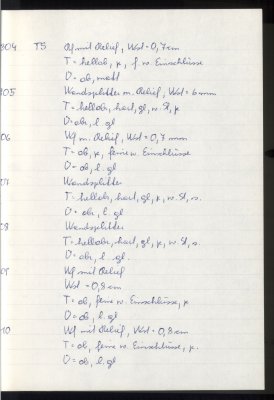 304 TS Wf mit Relief, Wst = 0,7 cm
T = hellob, k, f w. Einschlüsse
O = ob, matt
305 Wandsplitter m. Relief, Wst = 6 mm
T = hellob, hart, gl, w. St, k
O = ob, l. gl
06 Wf m. Relief, Wst = 0,7 mm
T = ob, k, feine w. Einschlüsse
O = ob, l. gl
07 Wandsplitter
T = hellob, hart, gl, k, w. St, s.
O = ob, l. gl
08 Wandsplitter
T = hellob, hart, gl, k, w. St, s.
O = ob, l. gl.
09 Wf mit Relief
Wst = 0,8 cm
T = ob, feine w. Einschlüsse, k
O = ob, l. gl
10 Wf mit Relief, Wst = 0,8 cm
T = ob, feine w. Einschlüsse, k.
O = ob, l. gl